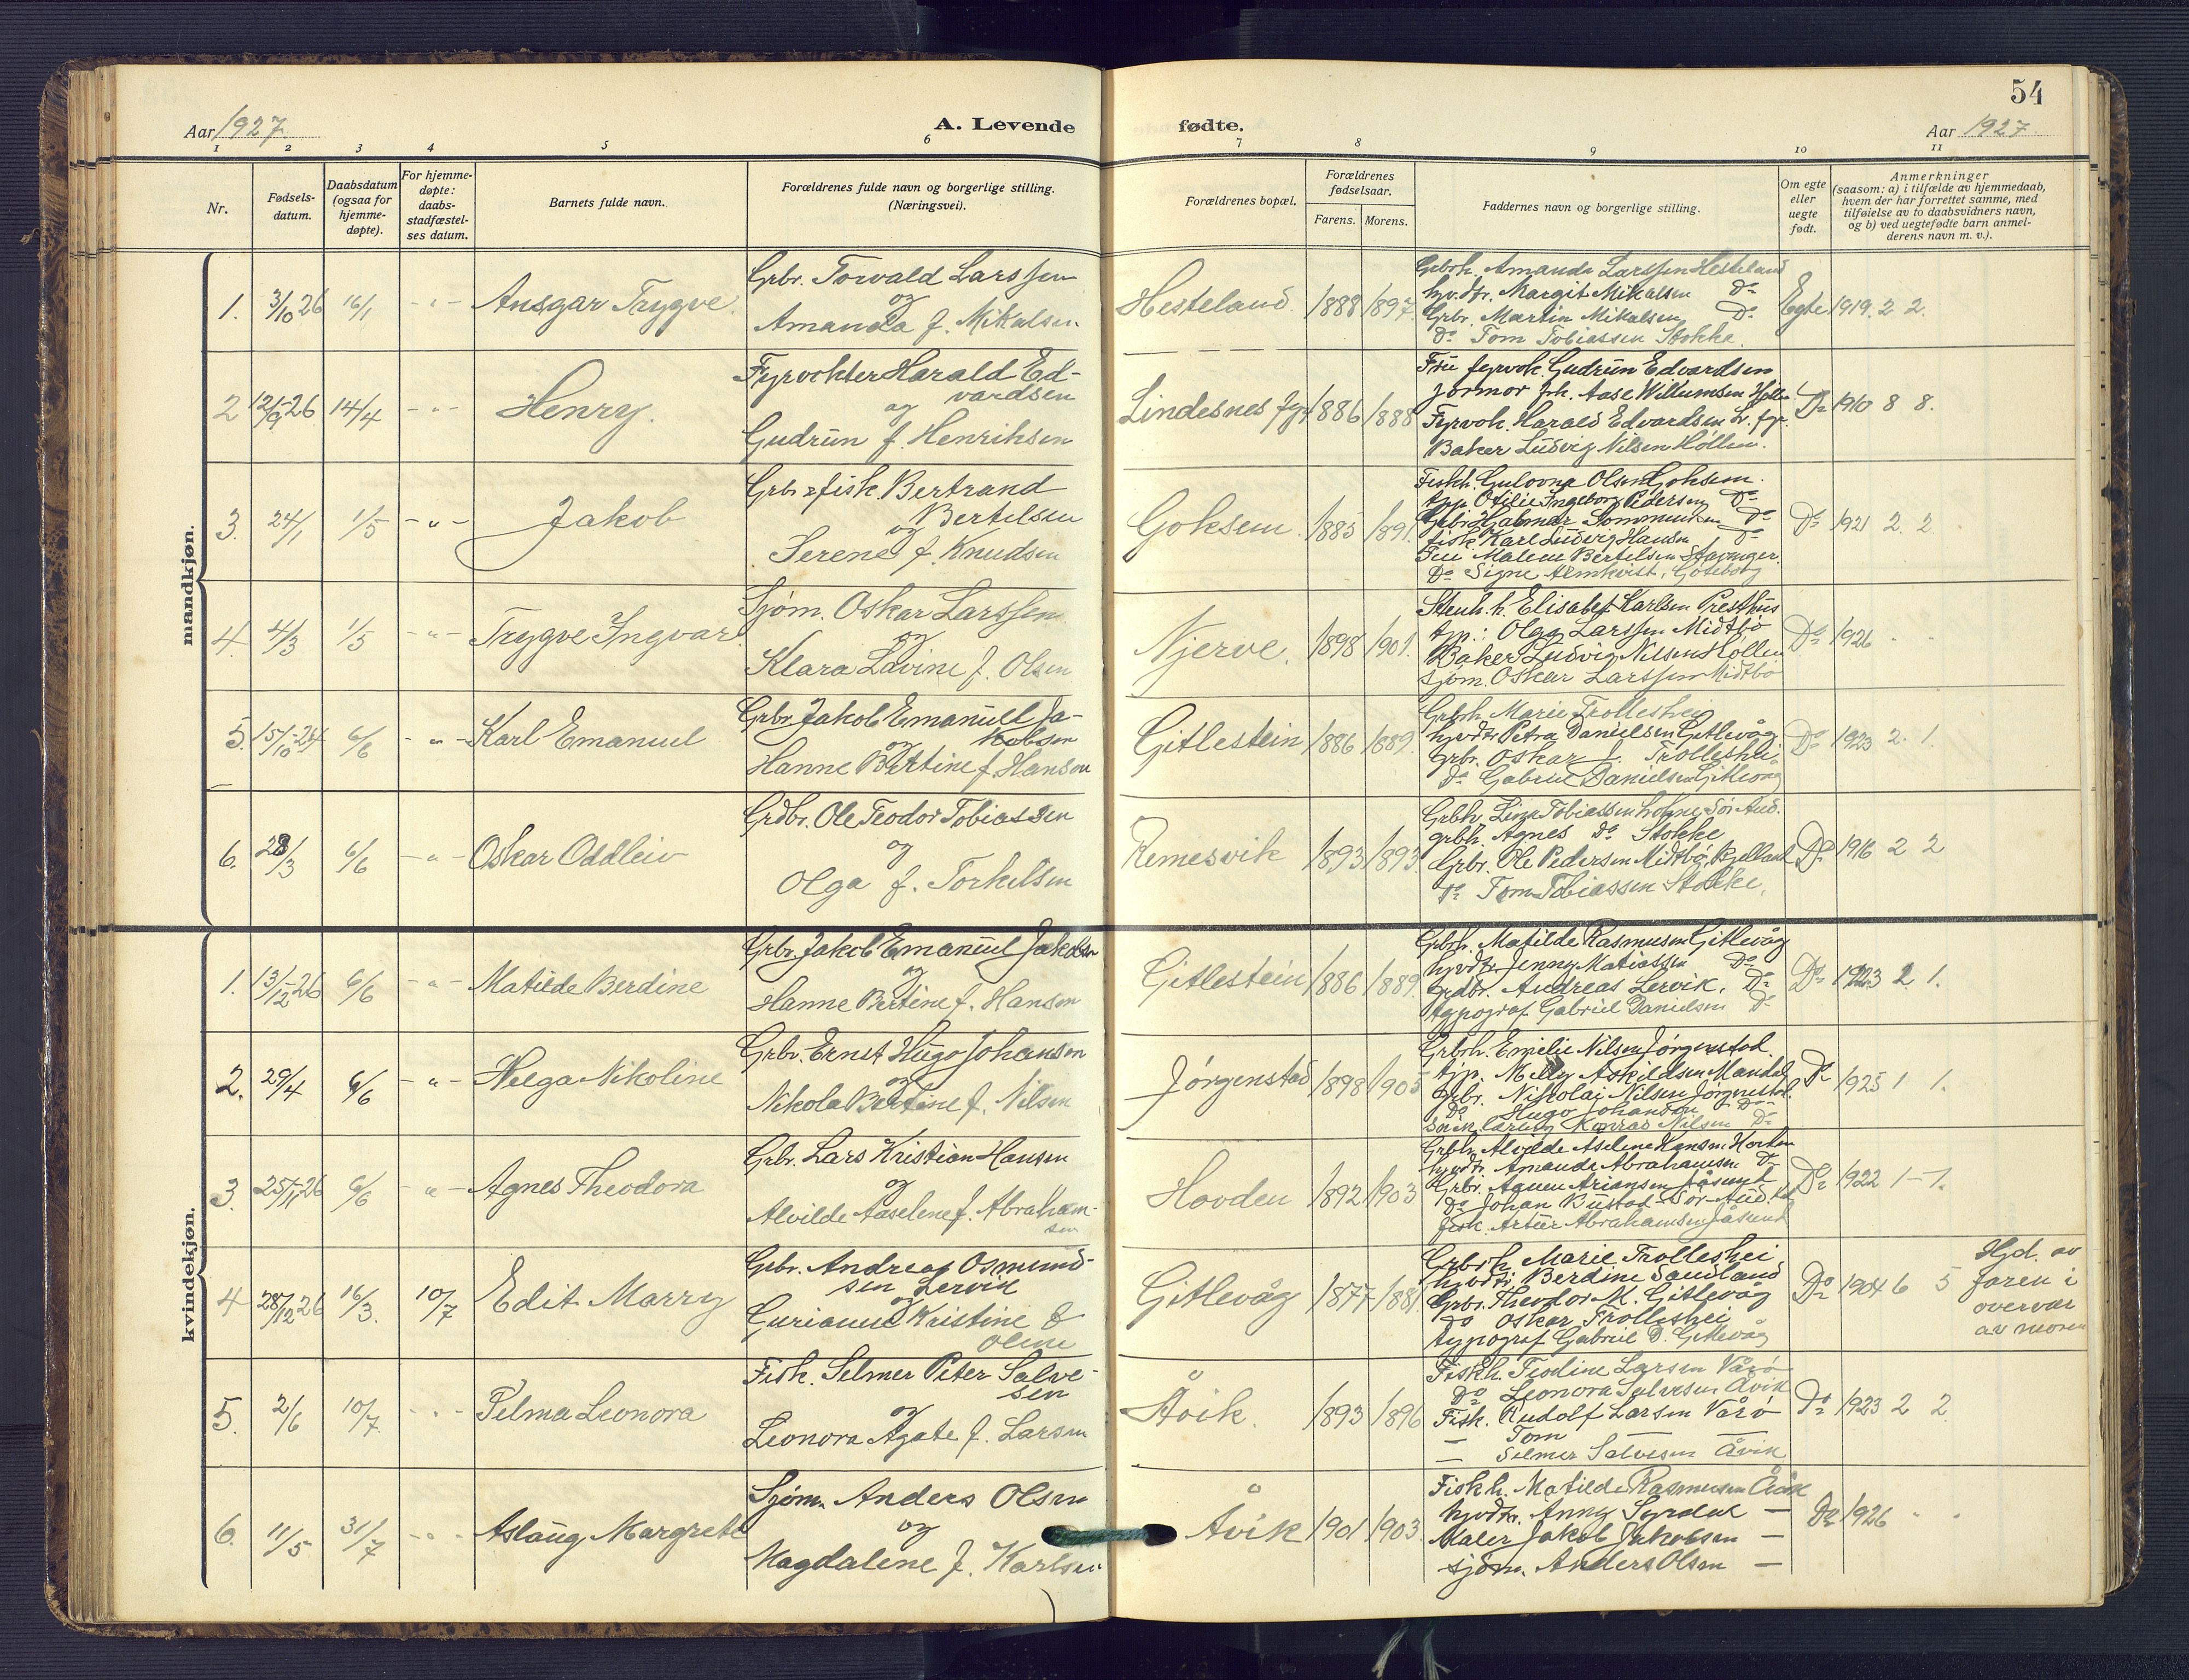 54
Aar 1927.
A. Levende fødte.
Aar 1927.
1 2 3 4 5 6 7 8 9 10 11
Nr.
Fødsels-
datum.
Daabsdatum
(ogsaa for
hjemme-
døpte).
For hjemme-
døpte:
daabs-
stadfæstel-
ses datum.
Barnets fulde navn.
Forældrenes fulde navn og borgerlige stilling.
(Næringsvei).
Forældrenes bopæl.
Forældrenes
fødselsaar.
Farens. Morens.
Faddernes navn og borgerlige stilling.
Om egte
eller
uegte
født.
Anmerkninger
(saasom: a) i tilfælde av hjemmedaab,
hvem der har forrettet samme, med
tilføielse av to daabsvidners navn,
og b) ved uegtefødte barn anmel-
derens navn m. v.).
mandkjøn.
1. 3/10 26 16/1 - " - Ansgar Trygve.
Grbr. Torvald Larssen
og
Amanda f. Mikalsen
Hesteland. 1888 1897.
Grbrh. Amanda Larssen Hesteland
hjv.dtr. Margit Mikalsen Do
Grbr. Martin Mikalsen Do
Do Tom Tobiassen Stokke.
Egte 1919. 2 2.
2 12/9 26 14/4 - " - Henry.
Fyrvokter Harald Ed-
vardsen
og
Gudrun f. Henriksen
Lindesnes fyr 1886 1888
Fru fyrvok. Gudrun Edvardsen
Jormor frk. Aase Willumsen
Fyrvok. Harald Edvardsen L. fyr.
Baker Ludvig Nilsen Høllen.
Do 1910 8 8.
3. 24/1 1/5 - " - Jakob
Grbr & fisk. Bertrand
Bertelsen
og
Serene f. Knudsen
Goksem. 1885 1891.
Fiskh. Gulovna Olsen Goksem.
tjp. Otilie Ingeborg Pedersen Do
Grbr. Halmar Do
fisk. Karl Ludvig Hansen Do
Fru Malene Bertelsen Stavanger.
Do Signe Almkvist, Göteborg
Do 1921 2. 2
4. 4/3 1/5 - " - Trygve Ingvar
Sjøm. Oskar Larssen
og
Klara Lovine f. Olsen
Njerve. 1898 1901.
Stenh. h. Elisabet Karlsen Presthus
tjp.: Olga Larssen Midtbø
Baker Ludvig Nilsen Høllen
Sjøm. Oskar Larssen Midtbø
Do 1926 " "
5. 15/10-24 6/6 - " - Karl Emanuel
Grbr. Jakob Emanuel Ja-
kobsen
og
Hanne Bertine f. Hansen
Gitlestein 1886 1889.
Grbrh. Marie Trolleshei
hjvdtr. Petra Danielsen Gitlevåg
Grbr. Oskar J. Trolleshei
Do Gabriel Danielsen Gitlevåg
Do 1923 2. 1.
6. 28/3 6/6 - " - Oskar Oddleiv
Grdbr. Ole Teodor Tobiassen
og
Olga f. Torkelsen
Remesvik 1893 1893.
Grbh. Lina Tobiassen Sør Aud.
grbh. Agnes Do Stokke
Grbr. Ole Pedersen Midtbø,
Do Tom Tobiassen Stokke.
Do 1916 2 2
kvindekjøn.
1. 13/12 26 6/6 - " - Matilde Berdine
Grbr. Jakob Emanuel Jakobsen
og
Hanne Bertine f. Hansen
Gitlestein 1886 1889.
Grbrh. Matilde Rasmusen Gitlevåg
hjvdtr. Jenny Matiassen Do
Grdbr. Andreas Lervik. Do
typograf Gabriel Danielsen Do
Do 1923 2. 1.
2. 29/4 6/6 - " - Helga Nikoline
Grbr. Ernst Hugo Johansen
og
Nikola Bertine f. Nilsen
Jørgenstad 1898 1905
Grbrh. Emelie Nilsen Jørgenstad.
tjp. Milly Askildsen Mandal
Grbr. Nikolai Nilsen Jørgenstad.
Do Hugo Johansen Do
Konrad Nilsen Do
Do 1925 1 1.
3. 25/11 26 6/6 - " - Agnes Theodora
Grbr. Lars Kristian Hansen
og
Alvilde Aaselene f. Abraham-
sen
Hovden 1892 1903
Grbrh. Alvilde Aselene Hansen
hjvdtr. Amanda Abrahamsen Do
Grbr. Ariansen Jåsund
Do Johan Bustad Sør-Aud.
fisk. Artur Abrahamsen Jåsund
Do 1922 1 - 1.
4 28/12 26 16/3. 10/7 Edit Marry
Grbr. Andreas Osmund-
sen Lervik
og
Kristine f.
Olsen
Gitlevåg 1877 1881
Grbrh. Marie Trolleshei
hjvdtr. Berdine
Grbr. Theodor M. Gitlevåg
Do Oskar Trolleshei
typograf Gabriel D. Gitlevåg
Do 1904 6 5
Hjd. av
faren i
overvær
av moren
5. 2/6 10/7 - " - Pelma Leonora
Fisk. Selmer Peter Salve-
sen
og
Leonora Agate f. Larsen
Åvik. 1893 1896
Fiskh. Teodine Larsen Vårø
Do Leonora Salvesen Åvik
Fisk. Rudolf Larsen Vårø
— Tom —
— Selmer Salvesen Åvik
Do 1923 2 2.
6. 11/5 31/7 - " - Aslaug Margrete
Sjøm. Anders Olsen
og
Magdalene f. Karlsen
Åvik 1901 1903.
Fiskh. Matilde Rasmusen Åvik
hjvdtr. Anny Syrdal —
Maler Jakob Jakobsen —
sjøm. Anders Olsen —
Do 1926 " "